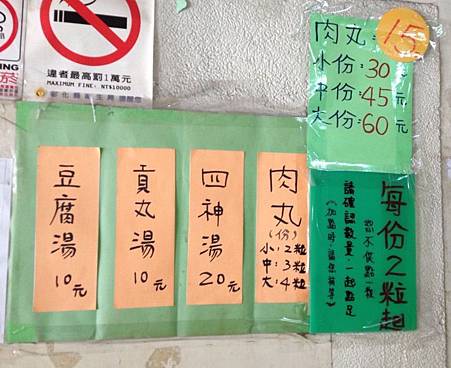 ING
菸
違者最高罰1萬元
MAXIMUM FINE: NT$10000
彰化縣衛生局 提醒您
肉丸:15
小份:30元
中份:45元
大份:60元
豆腐湯
10元
貢丸湯
10元
四神湯
20元
肉丸
(份)
小:2粒
中:3粒
大:4粒
每份2粒起
恕不供點一粒
請確認數量一起點足